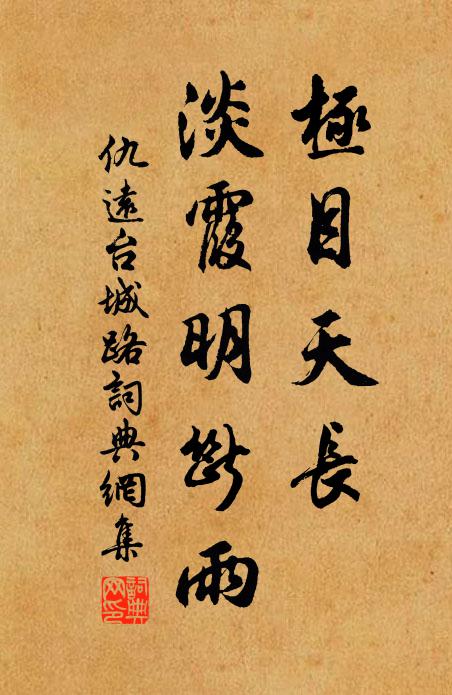 極目天長
淡霞明斷雨
仇遠台城路詞典網集
詞典網印